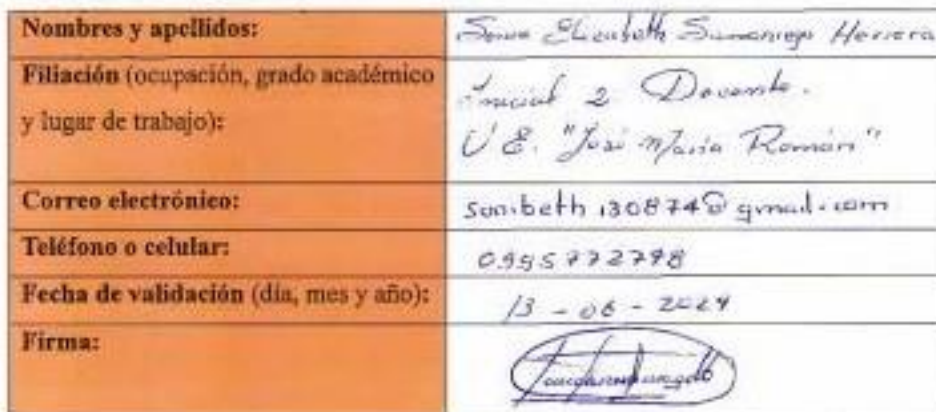 Nombres y apellidos:
Elizabeth Samaniego Herrera
Filiación (ocupación, grado académico
y lugar de trabajo):
Inicial 2 Docente.
U E. "José María Román"
Correo electrónico:
sonibeth130874@gmail.com
Teléfono o celular:
0995772798
Fecha de validación (día, mes y año):
13 - 06 - 2024
Firma: